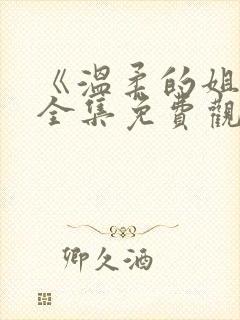 《溫柔的姐
全集免費觀
卿久酒